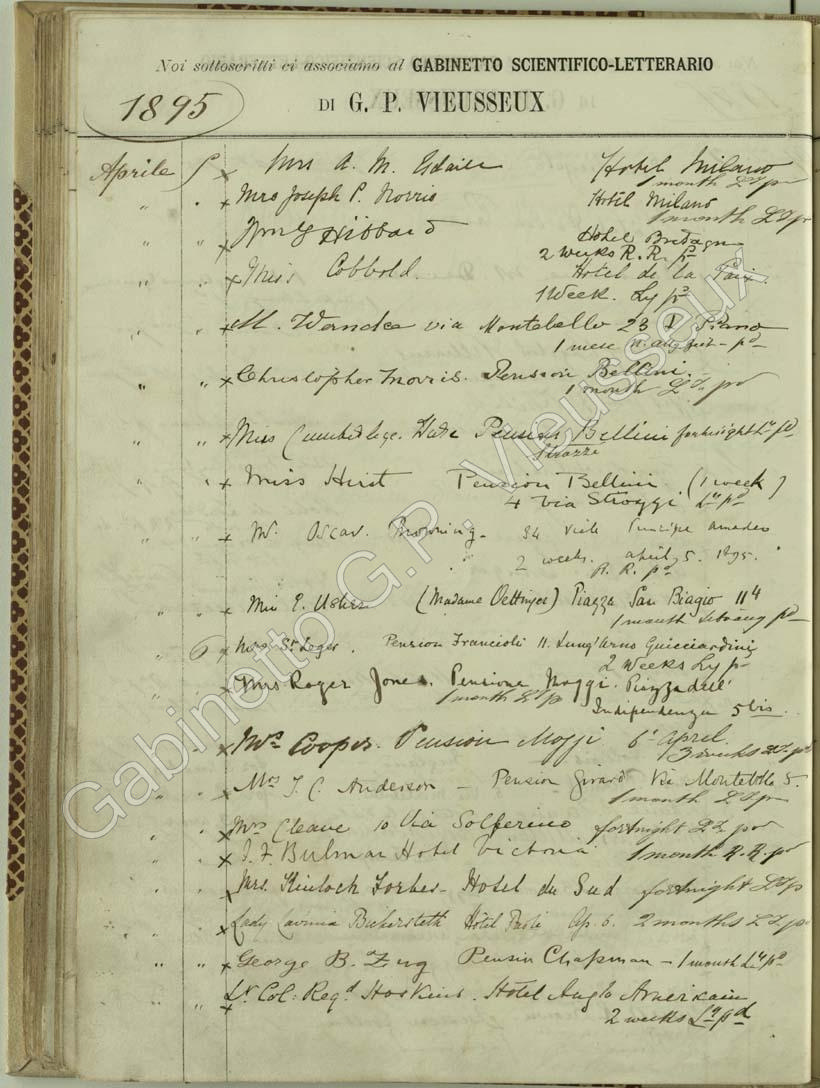 Noi sottoscritti ci associamo al GABINETTO SCIENTIFICO-LETTERARIO
1895
DI G. P. VIEUSSEUX
Aprile 5 x Mrs A. M. Hotel Milano
1 month
" . x Mrs Joseph P. Norris Hotel Milano
1 month
" " x Hibbard Hotel Bretagne
2 weeks R. R. pd
" " x Miss Cobbold. Hotel de la Paix.
1 Week. Ly pd
" " x M. via Montebello 23 I Piano
1 mese
" " x Christopher Morris. Pension Bellini.
1 month pd
" " x Miss Pension Bellini fortnight pd
Strozzi
" " x Miss Hirst Pension Bellini (1 week)
4 Via Strozzi pd
" " x Mr Oscar Browning - 34 Viale Principe Amadeo
" 2 weeks. April 5. 1895. "
R. R. pd
" " x Miss E. Usher (Madame Oettinger) Piazza San Biagio 114
1 month
" 6 x Mrs St Leger. Pension Francioli 11. Lung'Arno Guicciardini
2 weeks Ly pd
" x Mrs Roger Jones. Pensione Moggi. Piazza dell'
1 month
Indipendenza 5 bis.
" . x Mrs Cooper. Pension Moggi 6 April
3 weeks
" . x Mrs J. C. Anderson - Pension Girard Via Montebello 5.
1 month
" . x Mrs Cleave 10 Via Solferino fortnight pd
" . x J. F. Bulman Hotel Victoria 1 month R. R. pd
" . x Mrs. Kinloch Forbes - Hotel du Sud fortnight
" . Lady Lavinia Bickersteth Hotel Paoli Ap. 6. 2 months
" " x George B. Zug Pension Chapman - 1 month pd
" " x Lt Col: Regd Hoskins. Hotel Anglo Americain
2 weeks pd
Gabinetto G.P. Vieusseux